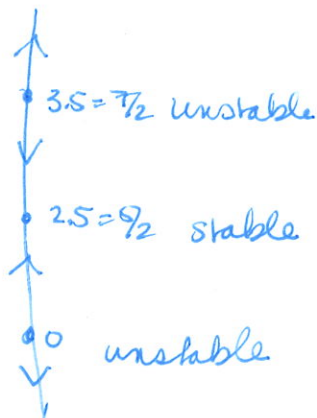 3.5=7/2 unstable
2.5=5/2 stable
0 unstable